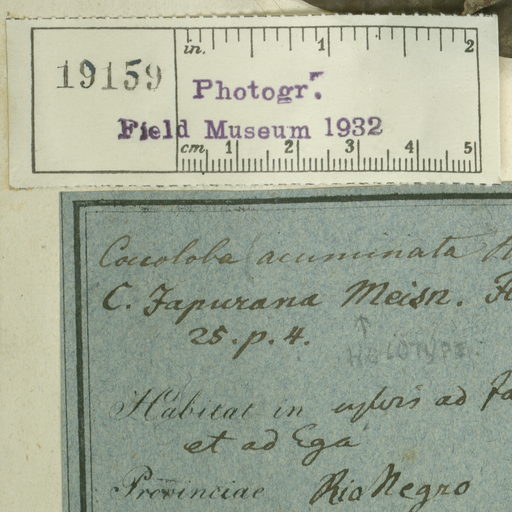 19159
in. 1 2
Photogr.
Field Museum 1932
cm 1 2 3 4 5
Cocoloba acuminata
C. Japurana Meisn. Fl
25. p. 4.
↑
HOLOTYPE.
Habitat in sylvis ad Ja
et ad Ega
Provinciae Rio Negro